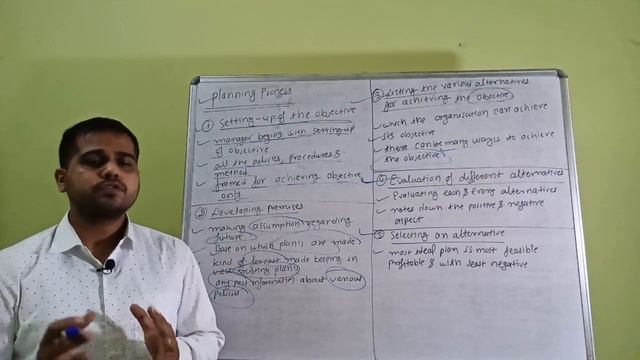 planning Process
① Setting-up of the objective
manager begins with setting up
of objective
all the policies, procedures &
method
framed for achieving objective
only
② Developing premises
making assumption regarding
future
Base on which plan's are made
kind of forecast made keeping in
view existing plan's
any past information about various
policies
③ Listing the various alternatives
for achieving the objective
which the organisation can achieve
its objective
there can be many ways to achieve
the objective
④ Evaluation of different alternatives
Evaluating each & every alternatives
notes down the positive & negative
aspect
⑤ Selecting an alternative
most ideal plan is most feasible
profitable & with least negative